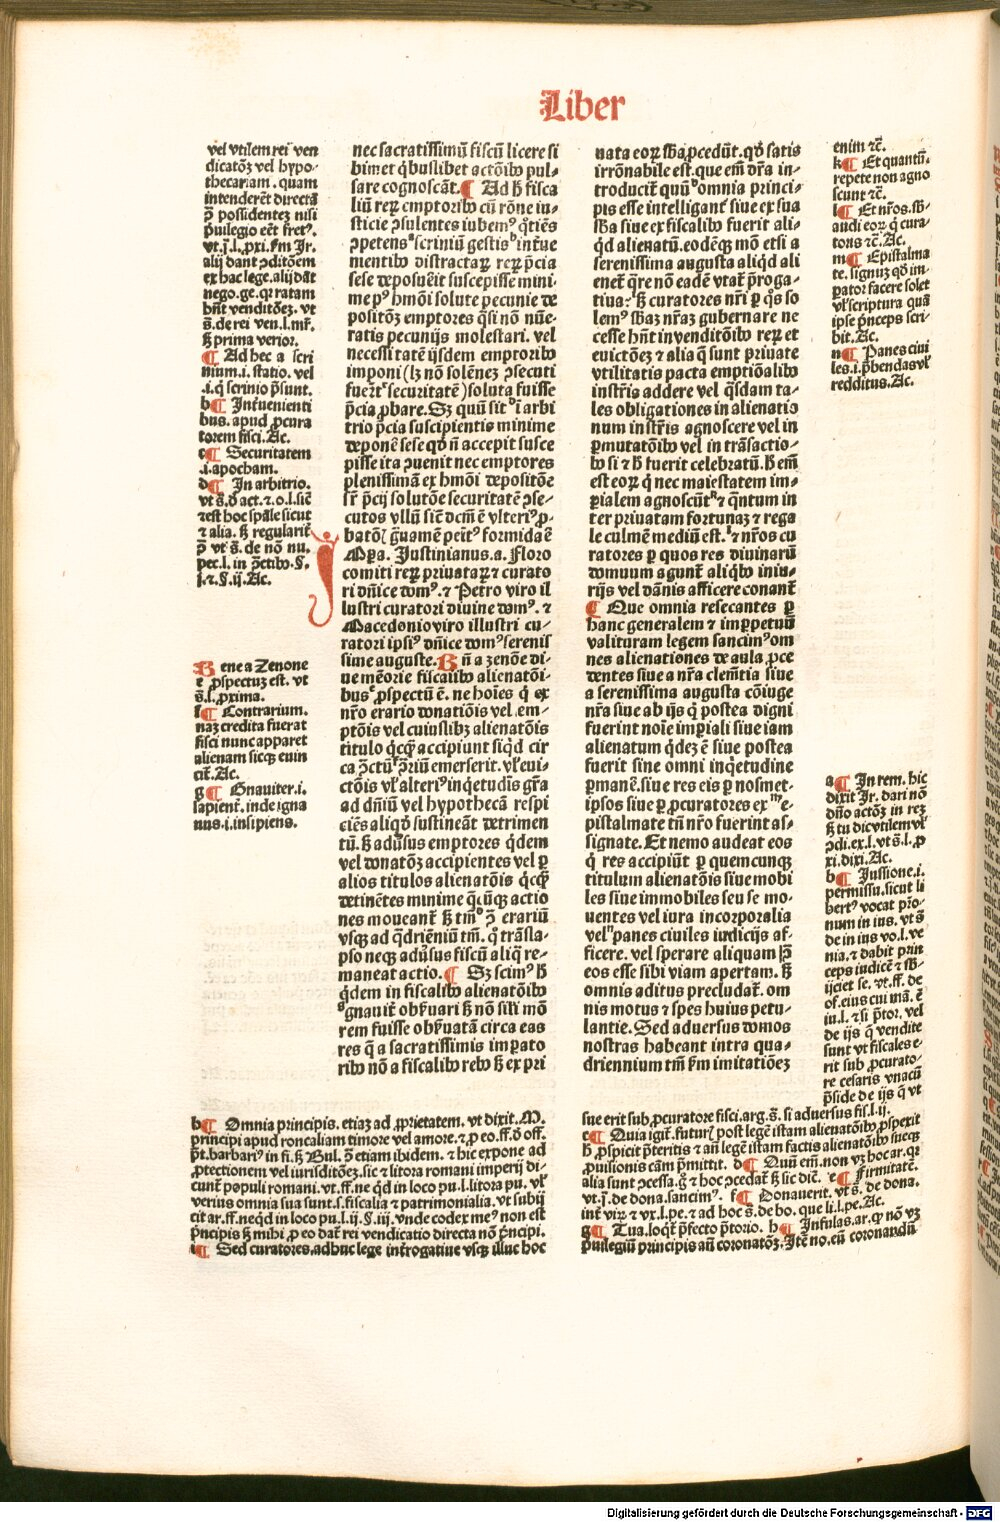 Liber
vel vtilem rei ven
dicatōꝫ vel hypo-
thecariam. quam
intenderēt directā
p̄ possidentez nisi
p̄uilegio eēt fretꝰ.
vt.j.l.ꝓxi.ſm Ir.
alij dant ꝯditōem
ex hac lege. alij dāt
nego.ge.qꝛ ratam
hn̄t venditōez. vt
s̄.de rei ven.l.mr̄.
ꝫ prima verior.
¶ Ad hec a scri
nium.i.statio. vel
.i.q̇ scrinio p̄sunt.
b¶ Int̄uenienti
bus. apud ꝓcura
torem fisci. Ac.
c¶ Securitatem
.i.apocham.
d¶ In arbitrio.
vt s̄.ꝺ̄ act.⁊.o.l.sic̄
⁊est hoc sp̄ale sicut
⁊ alia. ꝫ regularit̄
p̄ vt s̄. de nō nu.
pec.l. in p̄ctibꝰ.§.
j.⁊.§.ij. Ac.
Bene a Zenone
e ꝓspectuꝫ est. vt
s̄.l.ꝓxima.
f¶ Contrarium.
naꝫ credita fuerat
fisci nunc apparet
alienam sicqꝫ euin
cit̄. Ac.
g¶ Gnauiter.i.
sapient̄. inde igna
nus.i.insipiens.
nec sacratissimū fiscū licere si
bimet q̇buslibet actōibꝰ pul-
sare cognoscāt. ¶ Ad h̄ fisca
liū reꝝ emptoribꝰ cū rōne iu-
sticie ꝯsulentes iubemꝰ q̇tiēs
ꝯpetens ᵃscriniū gestis ᵇint̄ue
mentibꝰ distractaꝝ reꝝ p̄cia
sese deposuēit suscepisse mini-
me pꝰ hmōi solute pecunie de
positōꝫ emptores q̇si nō nūe-
ratis pecunijs molestari. vel
necessitatē ijsdem emptoribꝰ
imponi (lꝫ nō solēneꝫ ꝯsecuti
fuer̄t ᶜsecuritatē) soluta fuisse
p̄cia ꝓbare. Sꝫ quū sit ᵈi arbi
trio p̄cia suscipientis minime
deponē sese qꝺ̄ n̄ accepit susce
pisse ita ꝯuenit nec emptores
plenissimaꝫ ex hmōi depositōe
sr̄ p̄cij solutōe securitatē ꝯse-
cutos vllū sic̄ dcm̄ ē vlteriꝰ ꝓ-
batōꝫ ḡuamē peitꝰ formidaē
Impa. Justinianus.a. Floro
comiti reꝝ priuataꝝ ⁊ curato
ri dn̄ice domꝰ. ⁊ Petro viro il
lustri curatori diuine domꝰ. ⁊
Macedonio viro illustri cu-
ratori ipsiꝰ dn̄ice domꝰ serenis
sime auguste. Bn̄ a zenōe di-
ue mēorie fiscalibꝰ alienatōi-
bus ᵉꝓspectū ē. ne hoīes q̇ ex
nr̄o erario donatiōis vel em-
ptōis vel cuiuslibꝫ alienatōis
titulo q̇cꝙ accipiunt siqꝺ cir
ca ꝯctūꝰ ᶠp̄riū emerserit. vl̓ eui-
ctōis vl̓ alteriꝰ inq̇etudīs gr̄a
ad dn̄iū vel hypothecā respi
ciēs aliqꝺ̄ sustineāt detrimen
tū. ꝫ adūsus emptores q̇dem
vel donatōꝫ accipientes vel ꝑ
alios titulos alienatōis q̇cꝙ
detinētes minime q̇ūqꝫ actio
nes moueant̄ ꝫ tmͦ p̄ erariū
vsqꝫ ad q̄driēniū tm̄. q̇ trāsla-
pso neqꝫ adūsus fiscū aliq̄ re-
maneat actio. ¶ Sꝫ scimꝰ h̄
q̇dem in fiscalibꝰ alienatōibꝰ
ᵍgnauit̄ obs̄uari ꝫ nō sil̓i mō
rem fuisse obs̄uatā circa eas
res q̄ a sacratissimis impatо
ribꝰ nō a fiscalibꝰ rebꝰ ꝫ ex pri
nata eoꝝ sb̄a ꝓcedūt. qꝺ̄ satis
irrōnabile est. que em̄ dr̄a in-
troducit̄ quū ᵇomnia princi-
pis esse intelligant̄ siue ex sua
sb̄a siue ex fiscalibꝰ fuerit ali-
qꝺ̄ alienatū. eodēqꝫ mō etsi a
serenissima augusta aliqꝺ ali
enet̄ q̄re nō eadē vtat̄ p̄roga-
tiua. ⁱꝫ curatores nr̄i ꝑ q̇s so
lemꝰ sb̄aꝫ nr̄aꝫ gubernare ne
cesse hn̄t in venditōibꝰ reꝝ et
euictōeꝫ ⁊ alia q̄ sunt priuate
vtilitatis pacta emptiōalibꝰ
instr̄is addere vel q̇sdam ta-
les obligationes in alienatiо
num instr̄is agnoscere vel in
ꝑmutatōibꝰ vel in trāsactio-
bꝰ si ⁊ h̄ fuerit celebratū. h̄ em̄
est eoꝝ q̇ nec maiestatem im-
ꝑialem agnoscūt ᵏ ⁊ q̄ntum in
ter priuatam fortunaꝫ ⁊ rega
le culmē mediū est. ˡ⁊ nr̄os cu
ratores ꝑ quos res diuinarū
domuum agunt̄ aliq̇bꝰ iniu-
rijs vel dānis afficere conant̄
¶ Que omnia resecantes ꝑ
hanc generalem ⁊ imꝑpetuū
valituram legem sancimꝰ om
nes alienationes de aula ꝓce
dentes siue a nr̄a clemētia siue
a serenissima augusta cōiuge
nr̄a siue ab ijs q̇ postea digni
fuerint noīe imꝑiali siue iam
alienatum q̇deꝫ ē siue postea
fuerit sine omni inq̇etudine
ꝑmanē. siue res eis ꝑ nosmet-
ipsos siue ꝑ ꝓcuratores ex ᵐe-
pistalmate tn̄ nr̄o fuerint as-
signate. Et nemo audeat eos
q̇ res accipiūt ꝑ quemcunqꝫ
titulum alienatōis siue mobi
les siue immobiles seu se mo-
uentes vel iura incorporalia
vel ⁿpanes ciuiles iudicijs af-
ficere. vel sperare aliquam s̄ꝑ
eos esse sibi viam apertam. ꝫ
omnis aditus precludat̄. om
nis motus ⁊ spes huius petu-
lantie. Sed aduersus domos
nostras habeant intra qua-
driennium tm̄ ẜm imitatiōeꝫ
enim ⁊c̄.
k¶ Et quantū.
repete non agno
scunt ⁊c̄.
l¶ Et nr̄os. sb̄-
audi eoꝝ q̇ cura-
tons ⁊c̄. Ac.
m¶ Epistalma
te. signuꝫ qꝺ̄ im-
ꝑator facere solet
vl̓ scriptura quā
ipse p̄nceps scri-
bit. Ac.
n¶ Panes ciui
les.i.p̄bendas vl̓
redditus. Ac.
a¶ In rem. hic
dixit Ir. dari nō
dn̄o actōꝫ in reꝫ
ꝫ tu dic vtilem vl̓
ꝯdi.ex.l.vt s̄.l.ꝓ
xi.dixi. Ac.
b¶ Jussione.i.
permissu. sicut li
bertꝰ vocat p̄ro-
num in ius. vt s̄
de in ius vo.l.ve
nia. ⁊ dabit prin
ceps iudicē ⁊ sb̄-
ijciet se. vt.ff. de
of.eius cui mā. ē
iu.l. ⁊ si p̄tor. vel
de ijs q̇ vendite
sunt vt fiscales e-
rit sub ꝓcurato-
re cesaris vnacū
p̄side de ijs q̄ vt
h¶ Omnia principis. etiaꝫ ad ꝓprietatem. vt dixit. M.
principi apud roncaliam timore vel amore. ⁊ ꝓ eo.ff.ꝺ̄ off.
p̄t.barbariꝰ in fi. ꝫ Bul. p̄ etiam ibidem. ⁊ hic expone ad
ꝓtectionem vel iurisditōeꝫ. sic ⁊ litora romani imperij di-
cunt̄ populi romani. vt.ff. ne qꝺ in loco pu.l.litora pu. vl̓
verius omnia sua sunt.s.fiscalia ⁊ patrimonialia. vt subij
cit ar.ff. neqꝺ in loco pu.l.ij.§.iij. vnde codex meꝰ non est
p̄ncipis ꝫ mihi ꝓ eo dat̄ rei vendicatio directa nō p̄ncipi.
i¶ Sed curatores. adhuc lege int̄rogatiue vsqꝫ illuc hoc
sue erit sub ꝓcuratore fisci. arg.s̄. si aduersus fis.l.ij.
c¶ Quia igit̄. futurꝫ post legē istam alienatōibꝰ ꝓspexit
h̄ ꝓspicit p̄teritis ⁊ an̄ legē istam factis alienatōibꝰ sueqꝫ
ꝓuisionis cām p̄mittit. d¶ Quū em̄. non vꝫ hoc ar. qꝛ
alia sunt ꝯcessa. g̊ ⁊ hoc ꝯcedat̄ ꝫ sic dic̄. e¶ Firmitatē.
vt.j. de dona. sancimꝰ. f¶ Donauerit. vt s̄. de dona.
int̄ viꝝ ⁊ vx.l.pe. ⁊ ad hoc s̄. de bo. que li.l.pe. Ac.
g¶ Tua. loqt̄ p̄fecto p̄torio. h¶ Infulas. ar. ꝙ nō vꝫ
p̄uilegiū principis an̄ coronatōꝫ. Itē no. eū coronandū
Digitalisierung gefördert durch die Deutsche Forschungsgemeinschaft - DFG